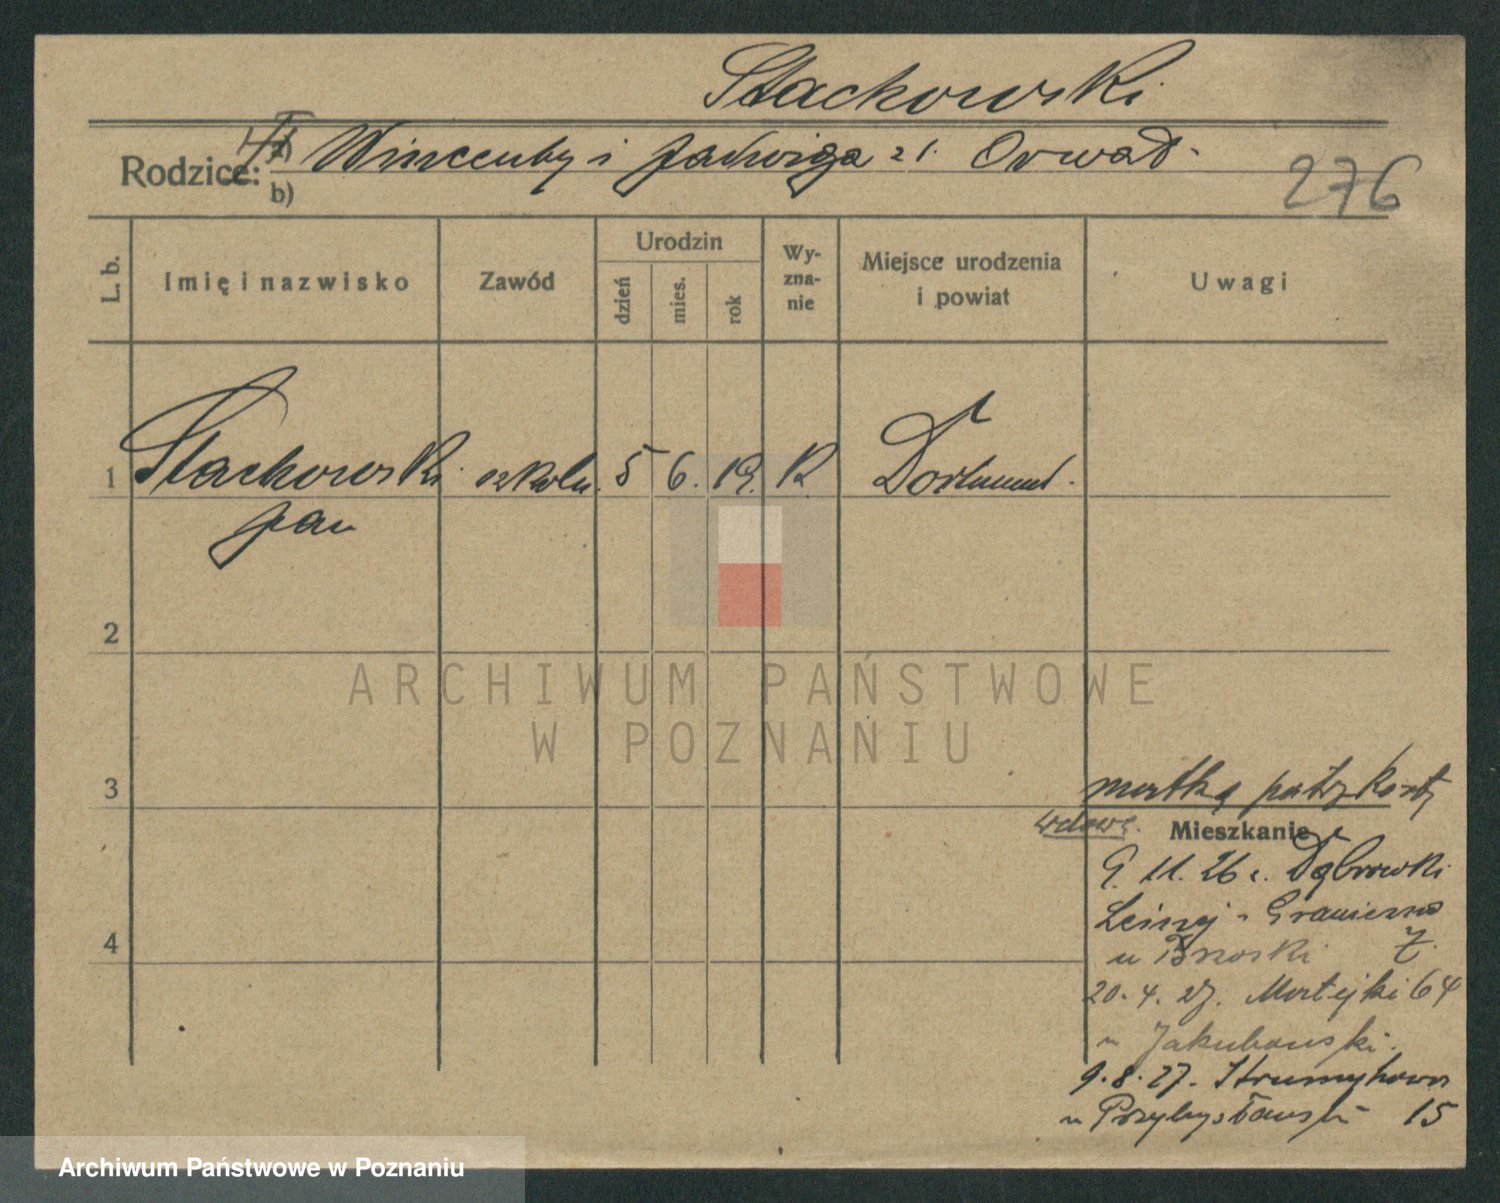 Stachowski
Rodzice: a) Wincenty i Jadwiga z d. Orwat
b)
276
L. b.
Imię i nazwisko
Zawód
Urodzin
dzień
mies.
rok
Wy-
zna-
nie
Miejsce urodzenia
i powiat
Uwagi
1 Stachowski szkoln. 5 6. 19. K Dortmund.
Jan
2
3
4
matka patrz karty
wdowę.
Mieszkanie
9. 11. 26 r. Dąbrowski
Graniczna
u Brzoski 7.
20. 4. 27. Matejki 64
u Jakubowski.
9. 8. 27. Strumykowa
u Przybylstawski 15
ARCHIWUM PAŃSTWOWE
W POZNANIU
Archiwum Państwowe w Poznaniu